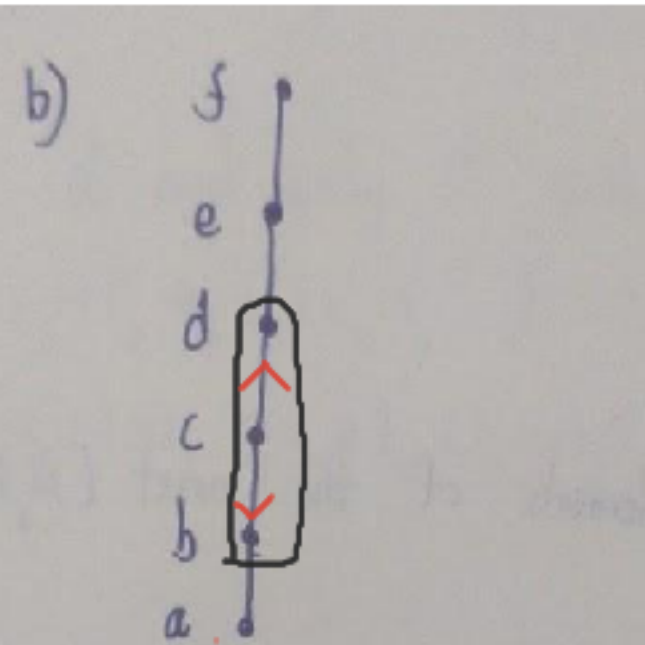 b) f
e
d
c
b
a